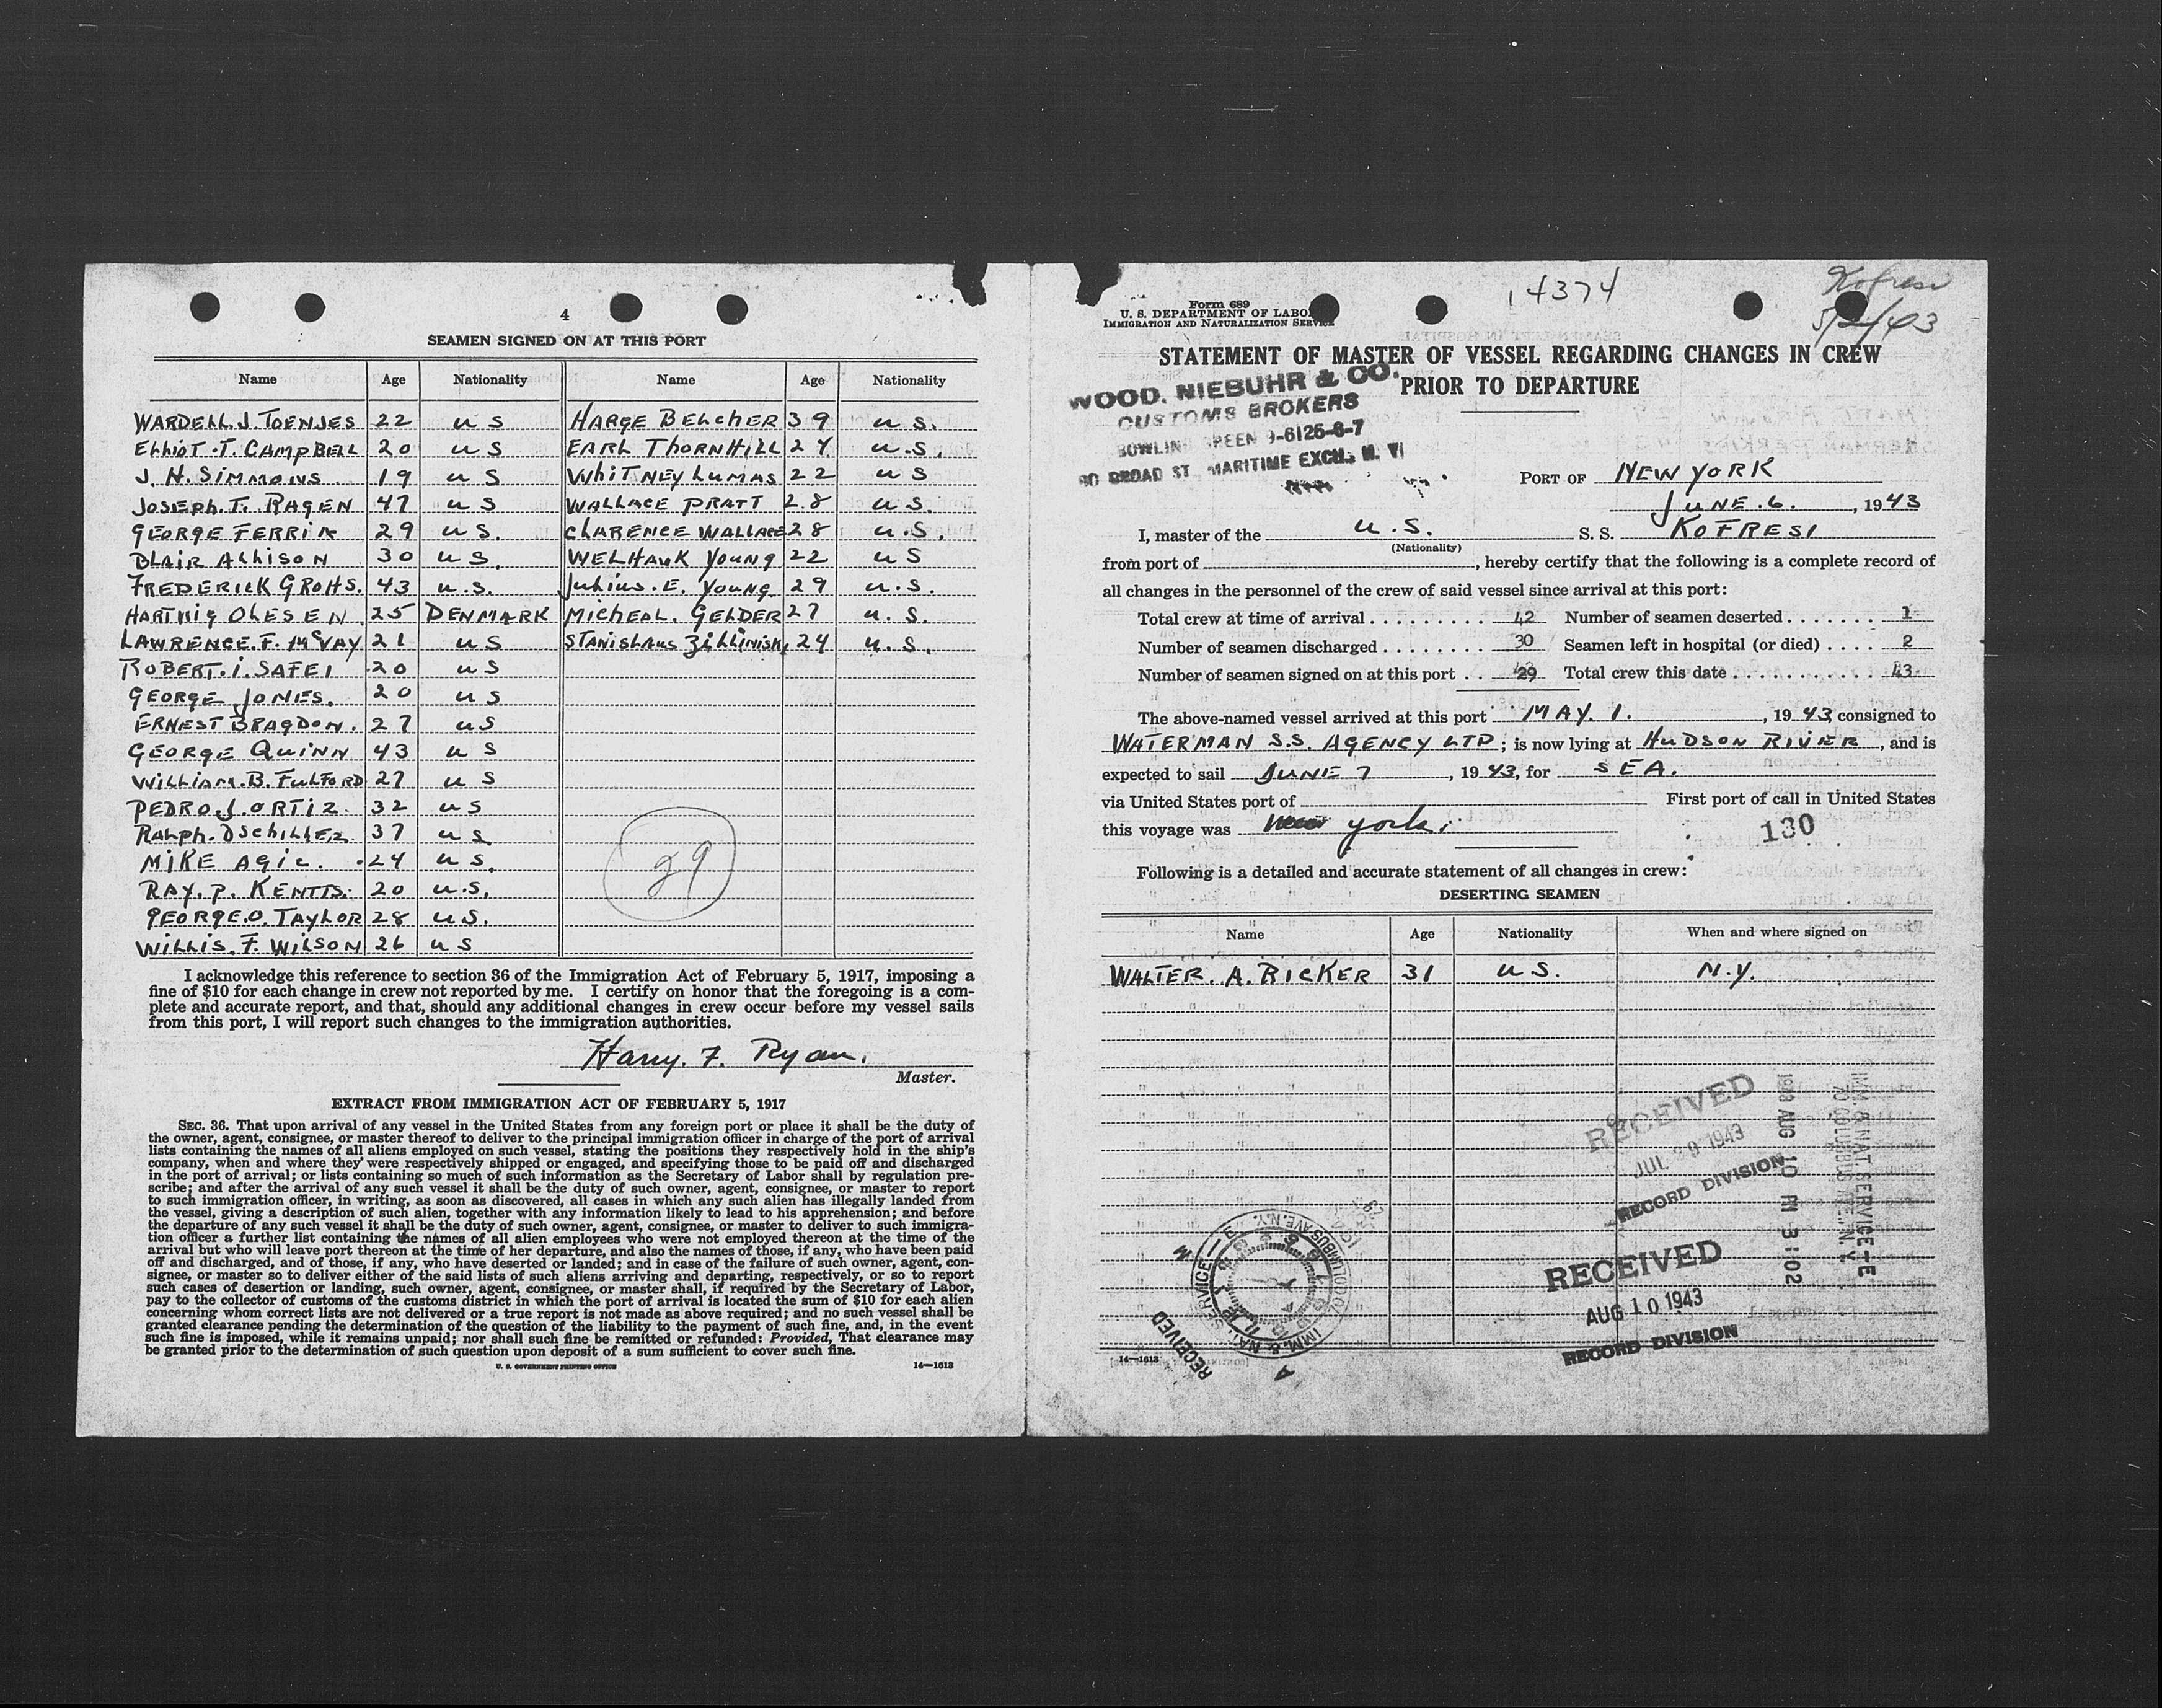 4
SEAMEN SIGNED ON AT THIS PORT
Name Age Nationality Name Age Nationality
WARDELL.J.TOENJES 22 U S HARGE BELCHER 39 U S.
ELLIOT.T.CAMPBELL 20 U S EARL THORNHILL 24 U.S.
J. H. SIMMONS 19 U S WHITNEY LUMAS 22 U S
JOSEPH.T. RAGEN 47 U S WALLACE PRATT 28 U S.
GEORGE FERRIN 29 U S. CLARENCE WALLACE 28 U.S.
BLAIR ALLISON 30 U S. WELHAUK YOUNG 22 U S
FREDERICK GROHS. 43 U.S. JULIUS.E. YOUNG 29 U.S.
HARTWIG OLESEN 25 DENMARK MICHEAL. GELDER 27 U.S.
LAWRENCE.F. McVAY 21 U S STANISLAUS 24 U.S.
ROBERT.I.SAFEI 20 U S
GEORGE JONES. 20 U S
ERNEST BRAGDON. 27 U S
GEORGE QUINN 43 U S
WILLIAM.B.FULFORD 27 U S
PEDRO J.ORTIZ. 32 U S
RALPH.D SCHILLER 37 U S
MIKE AGIC. 24 U S.
RAY.P. 20 U.S.
GEORGE.O.TAYLOR 28 U.S.
WILLIS.F.WILSON 26 U S
29
I acknowledge this reference to section 36 of the Immigration Act of February 5, 1917, imposing a
fine of $10 for each change in crew not reported by me. I certify on honor that the foregoing is a com-
plete and accurate report, and that, should any additional changes in crew occur before my vessel sails
from this port, I will report such changes to the immigration authorities.
Harry. F. Ryan.
Master.
EXTRACT FROM IMMIGRATION ACT OF FEBRUARY 5, 1917
SEC. 36. That upon arrival of any vessel in the United States from any foreign port or place it shall be the duty of
the owner, agent, consignee, or master thereof to deliver to the principal immigration officer in charge of the port of arrival
lists containing the names of all aliens employed on such vessel, stating the positions they respectively hold in the ship's
company, when and where they were respectively shipped or engaged, and specifying those to be paid off and discharged
in the port of arrival; or lists containing so much of such information as the Secretary of Labor shall by regulation pre-
scribe; and after the arrival of any such vessel it shall be the duty of such owner, agent, consignee, or master to report
to such immigration officer, in writing, as soon as discovered, all cases in which any such alien has illegally landed from
the vessel, giving a description of such alien, together with any information likely to lead to his apprehension; and before
the departure of any such vessel it shall be the duty of such owner, agent, consignee, or master to deliver to such immigra-
tion officer a further list containing the names of all alien employees who were not employed thereon at the time of the
arrival but who will leave port thereon at the time of her departure, and also the names of those, if any, who have been paid
off and discharged, and of those, if any, who have deserted or landed; and in case of the failure of such owner, agent, con-
signee, or master so to deliver either of the said lists of such aliens arriving and departing, respectively, or so to report
such cases of desertion or landing, such owner, agent, consignee, or master shall, if required by the Secretary of Labor,
pay to the collector of customs of the customs district in which the port of arrival is located the sum of $10 for each alien
concerning whom correct lists are not delivered or a true report is not made as above required; and no such vessel shall be
granted clearance pending the determination of the question of the liability to the payment of such fine, and, in the event
such fine is imposed, while it remains unpaid; nor shall such fine be remitted or refunded: Provided, That clearance may
be granted prior to the determination of such question upon deposit of a sum sufficient to cover such fine.
U. S. GOVERNMENT PRINTING OFFICE 14—1613
14374
Kofresi
Form 689
U. S. DEPARTMENT OF LABOR
IMMIGRATION AND NATURALIZATION SERVICE
STATEMENT OF MASTER OF VESSEL REGARDING CHANGES IN CREW
PRIOR TO DEPARTURE
WOOD, NIEBUHR & CO.
CUSTOMS BROKERS
BOWLING GREEN 9-6125-6-7
80 BROAD ST. MARITIME EXCH. N. Y.
PORT OF NEW YORK
JUNE.6., 1943
I, master of the U.S. S. S. KOFRESI
(Nationality)
from port of , hereby certify that the following is a complete record of
all changes in the personnel of the crew of said vessel since arrival at this port:
Total crew at time of arrival 42 Number of seamen deserted 1
Number of seamen discharged 30 Seamen left in hospital (or died) 2
Number of seamen signed on at this port 29 Total crew this date 43
The above-named vessel arrived at this port MAY. 1., 1943, consigned to
WATERMAN S.S. AGENCY LTD; is now lying at HUDSON RIVIER, and is
expected to sail JUNE 7, 1943, for SEA.
via United States port of First port of call in United States
this voyage was New York. 130
Following is a detailed and accurate statement of all changes in crew:
DESERTING SEAMEN
Name Age Nationality When and where signed on
WALTER. A. BICKER 31 U S. N.Y.
RECEIVED
JUL 29 1943
RECORD DIVISION
RECEIVED
AUG 10 1943
RECORD DIVISION
1943 AUG 10 PM 3:02
IMM. & NAT. SERVICE
70 COLUMBUS AVE., N. Y.
RECEIVED
14—1613